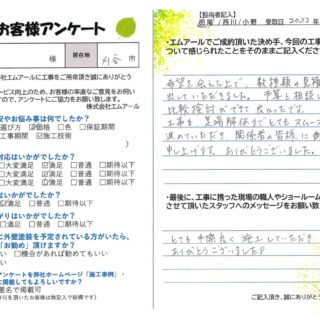 お客様アンケート
様 居在地 刈谷 市
社エムアールに工事をご用命頂き誠にありがとう
サービス向上のため、お客様の率直なご意見をお伺い
ので、アンケートにご協力をお願い致します。
株式会社エムアール
安やお悩み事は何でしたか?
選び方 ☑価格 □色 □保証期間
工事期間 ☑施工技術
対応はいかがでしたか?
□大変満足 ☑満足 □普通 □期待以下
□大変満足 ☑満足 □普通 □期待以下
いかがでしたか?
足 ☑満足 □普通 □期待以下
がりはいかがでしたか?
足 ☑満足 □普通 □期待以下
に外壁塗装を予定されている方がいたら、
「お勧め」頂けますか?
□機会があれば勧めてもいい
ない
アンケートを弊社ホームページ「施工事例」・
に掲載してもよろしいですか?
匿名で掲載
可を頂いたお客様は無記入で結構です)
【担当者記入】
/西川/小野 受取日 2022年
・エムアールでご成約頂いた決め手、今回の工事
ついて感じられたことをそのままご記入ください
希望を伝えた上で、数種類の見積
出していただきました。予算と相談し
比較検討ができて良かったです。
工事も足場解体までとてもスムーズ
進めていただき、関係者の皆様に
申し上げます。ありがとうございました。
・最後に、工事に携った現場の職人やショールーム
させて頂いたスタッフへのメッセージをお願い致
とても手際良く施工していただき
ありがとうございました。
ご記入頂き、誠にありがとう